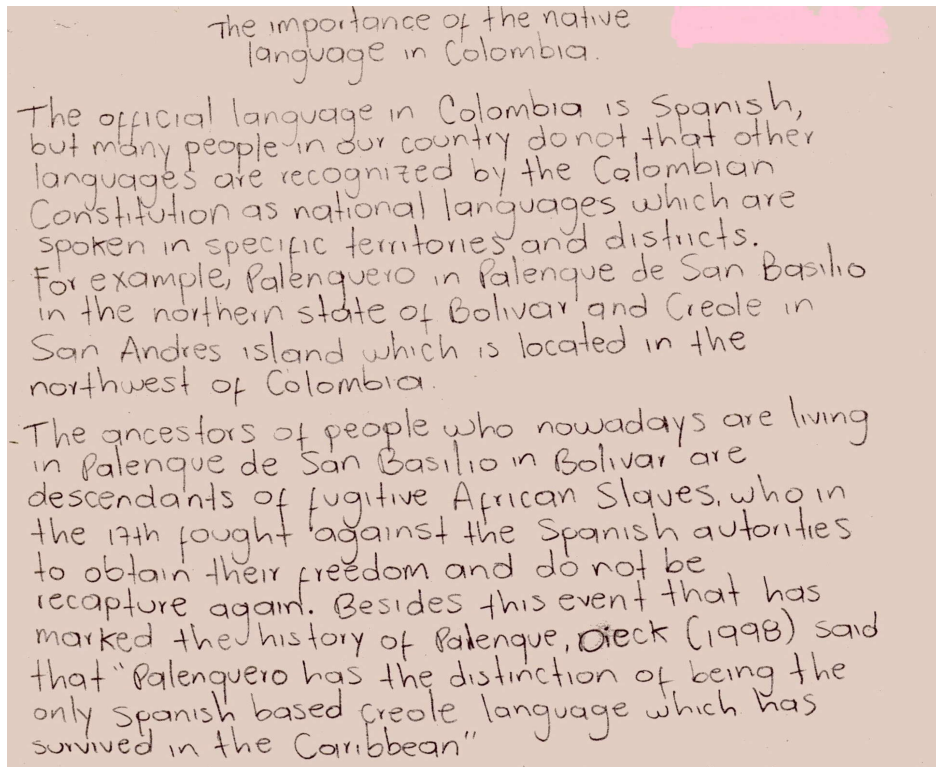 The importance of the native
language in Colombia.
The official language in Colombia is Spanish,
but many people in our country do not that other
languages are recognized by the Colombian
Constitution as national languages which are
spoken in specific territories and districts.
For example, Palenquero in Palenque de San Basilio
in the northern state of Bolivar and Creole in
San Andres island which is located in the
northwest of Colombia.
-The ancestors of people who nowadays are living
in Palenque de San Basilio in Bolivar are
descendants of fugitive African Slaves, who in
the 17th fought against the Spanish autorities
to obtain their freedom and do not be
recapture again. Besides this event that has
marked the history of Palenque, Dieck (1998) said
that "Palenquero has the distinction of being the
only Spanish based creole language which has
survived in the Caribbean"